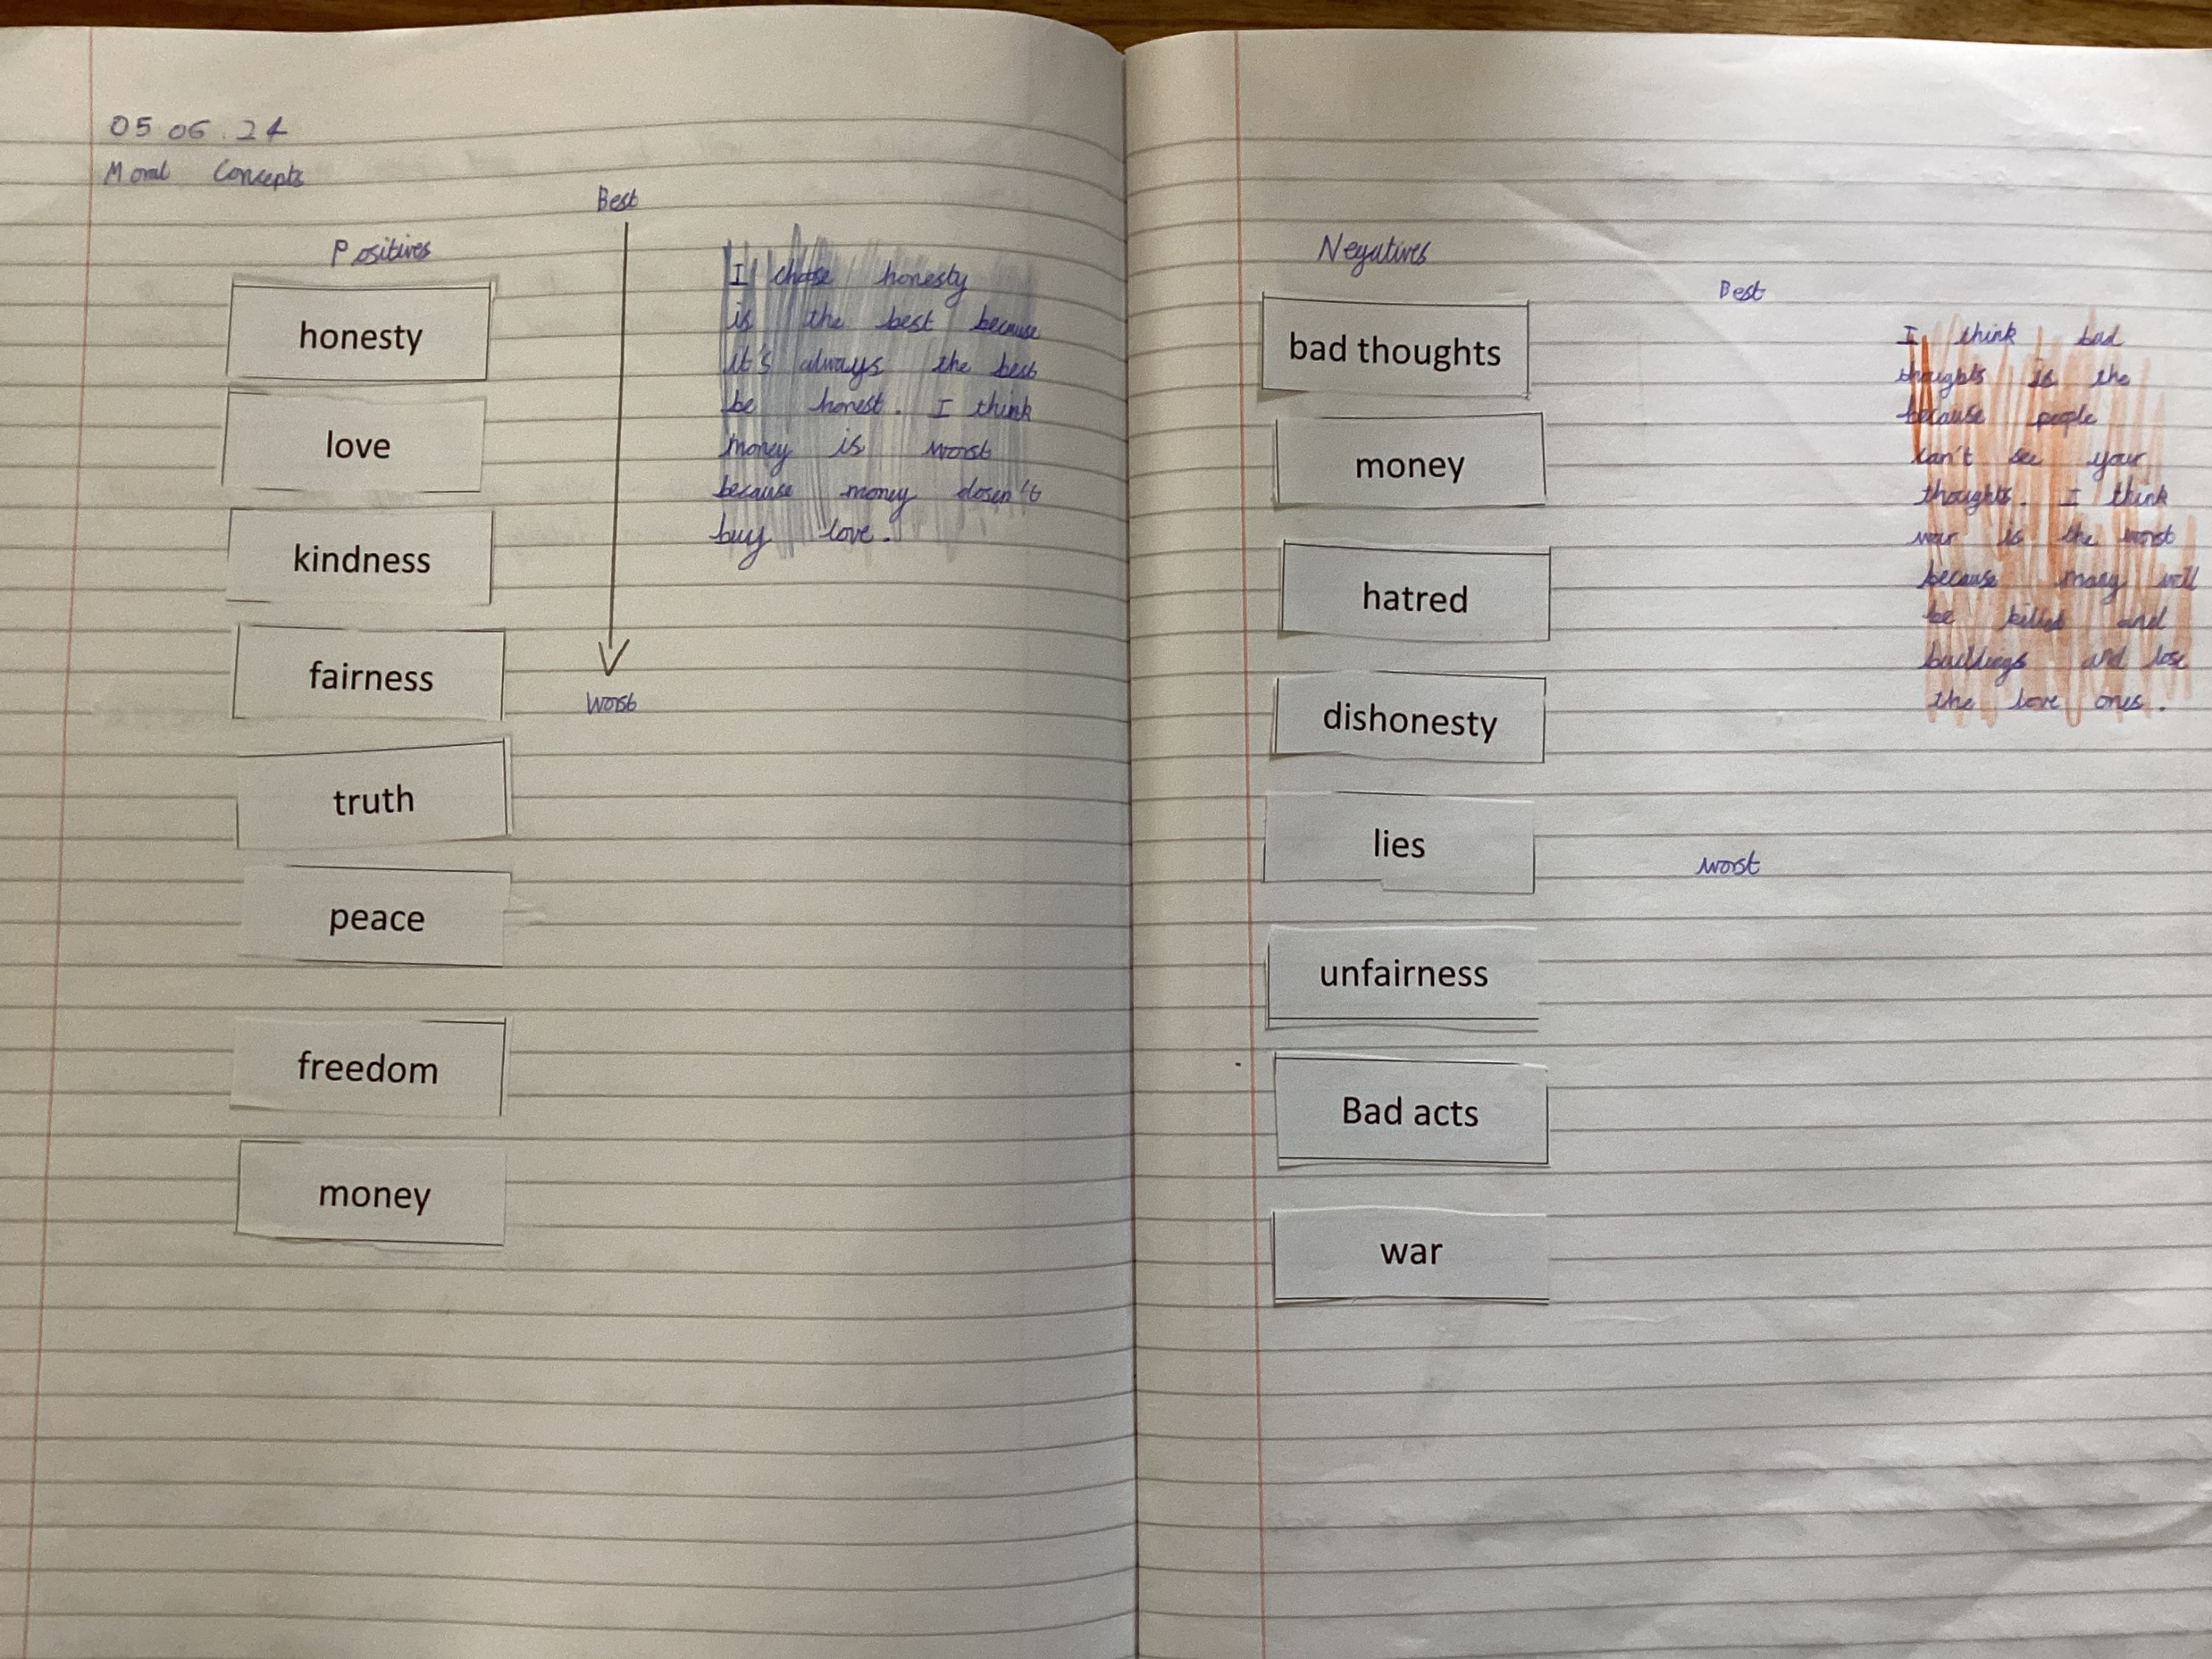 05 06 . 24
Moral Concepts
Best
Positives
honesty
love
kindness
fairness
truth
peace
freedom
money
Worst
I chose honesty
is the best because
it's always the best
be honest. I think
money is worst
because money dosen't
buy love.
Negatives
Best
bad thoughts
money
hatred
dishonesty
lies
unfairness
Bad acts
war
worst
I think bad
thoughts is the
because people
can't see your
thoughts. I think
war is the worst
because many will
be killed and
buildings and lose
the love ones.